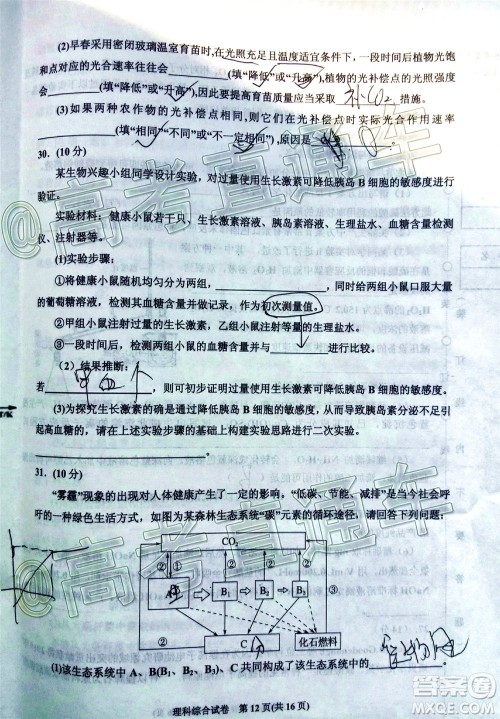 (2)早春采用密闭玻璃温室育苗时,在光照充足且温度适宜条件下,一段时间后植物光饱
和点对应的光合速率往往会________(填“降低”或“升高”),植物的光补偿点的光照强度
会________(填“降低”或“升高”),因此要提高育苗质量应当采取 补CO₂ 措施。
(3)如果两种农作物的光补偿点时相同,则它们在光补偿点时实际光合作用速率
________(填“相同”“不同”或“不一定相同”),原因是________。
30. (10分)
某生物兴趣小组同学设计实验,对过量使用生长激素可降低胰岛B细胞的敏感度进行
验证。
实验材料:健康小鼠若干只、生长激素溶液、胰岛素溶液、生理盐水、血糖含量检测
仪、注射器等。
(1)实验步骤:
①将健康小鼠随机均分为两组,________,同时给两组小鼠口服大量
的葡萄糖溶液,检测其血糖含量并做记录,作为初次测量值。
②甲组小鼠注射过量的生长激素,乙组小鼠注射等量的生理盐水。
③一段时间后,检测两组小鼠的血糖含量并与________进行比较。
(2)结果推断:
若________,则可初步证明过量使用生长激素可降低胰岛B细胞的敏感度。
(3)为探究生长激素的确是通过降低胰岛B细胞的敏感度,而不是降低胰岛素作用引起
高血糖的,请在上述实验步骤的基础上构建实验思路进行二次实验。
31. (10分)
“雾霾”现象的出现对人体健康产生了一定的影响,“低碳、节能、减排”是当今社会呼
吁的一种绿色生活方式,如图为某森林生态系统“碳”元素的循环途径,请回答下列问题:
CO₂
② ① ② ③
A B₁ B₂ B₃
② ②
C 化石燃料
(1)该生态系统中A、B(B₁、B₂、B₃)、C共同构成了该生态系统的________
理科综合试卷 第12页(共16页)
@高考直通车
@高考直通车